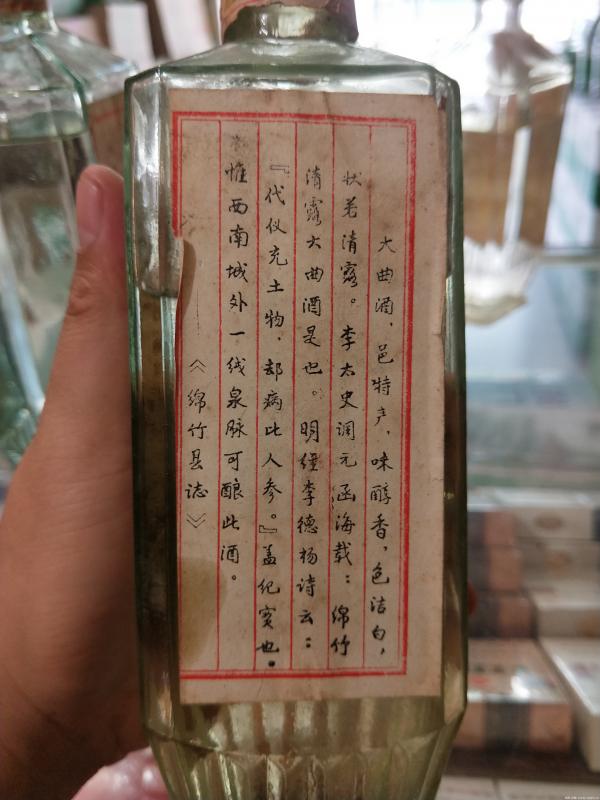 大曲酒，邑特产，味醇香，色洁白，
状若清露。李太史调元函海载：绵竹
清露大曲酒是也。明经李德杨诗云：
『代仪充土物，却病比人参。』盖纪实也。
惟西南城外一线泉脉可酿此酒。
《绵竹县誌》